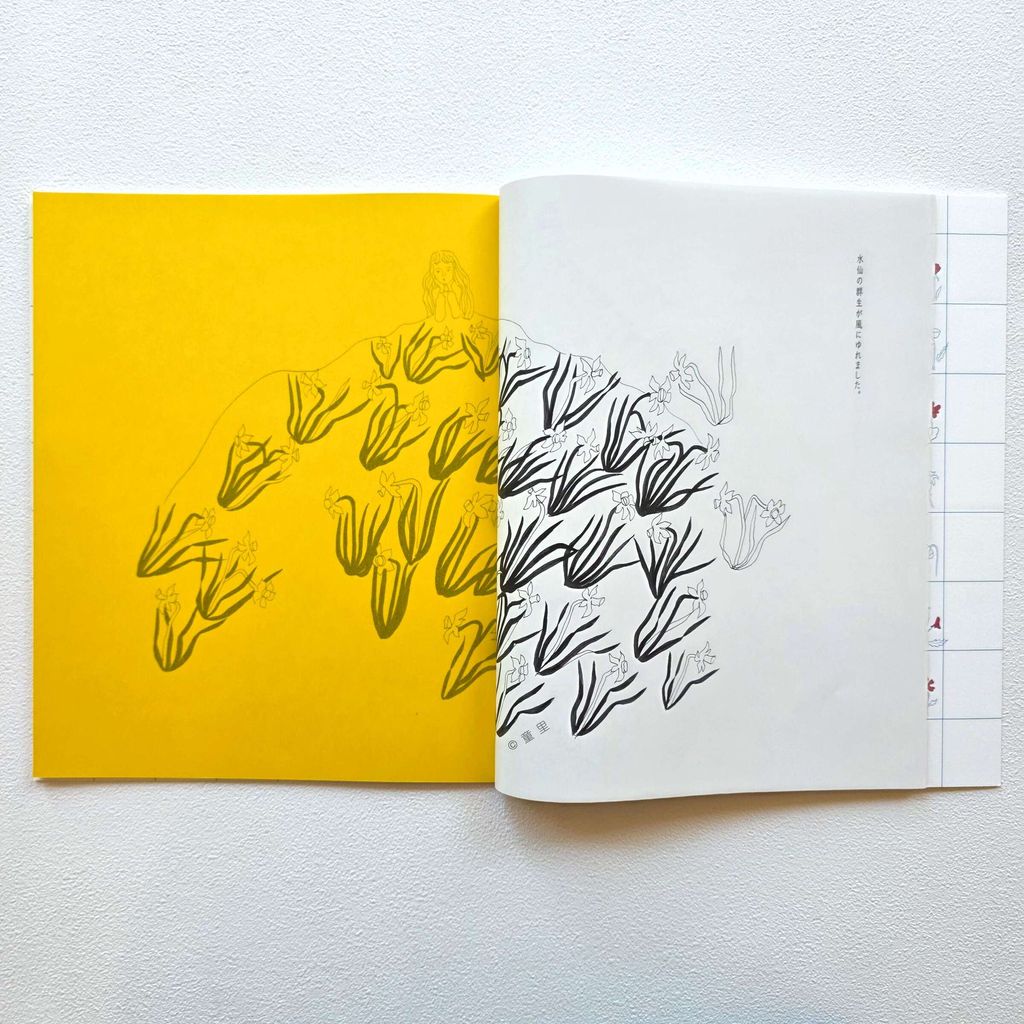 水仙の群生が風にゆれました。
© 童里